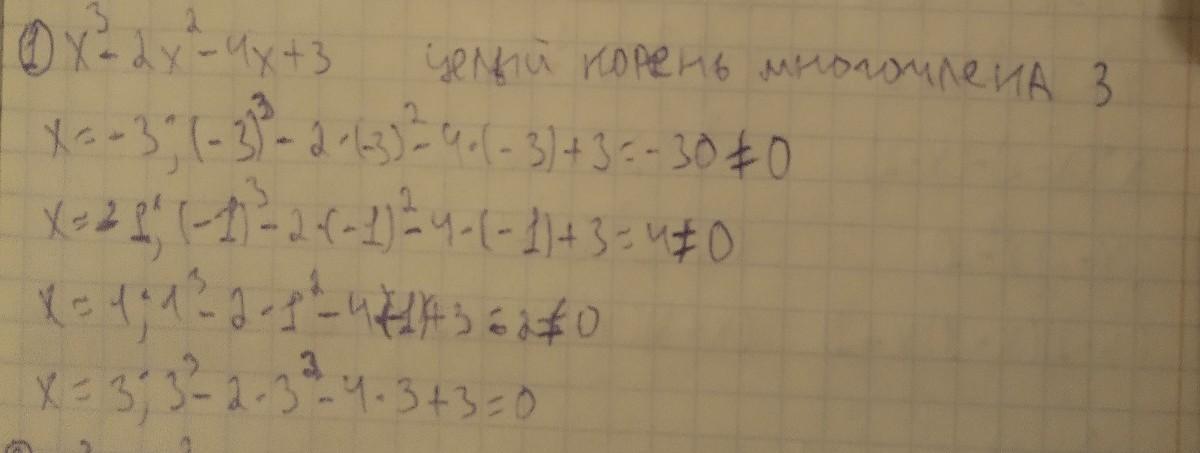 ① x³ - 2x² - 4x + 3 целый корень многочлена 3
x = -3; (-3)³ - 2·(-3)² - 4·(-3) + 3 = -30 ≠ 0
x = -1; (-1)³ - 2·(-1)² - 4·(-1) + 3 = 4 ≠ 0
x = 1; 1³ - 2·1² - 4·1 + 3 = -2 ≠ 0
x = 3; 3³ - 2·3² - 4·3 + 3 = 0